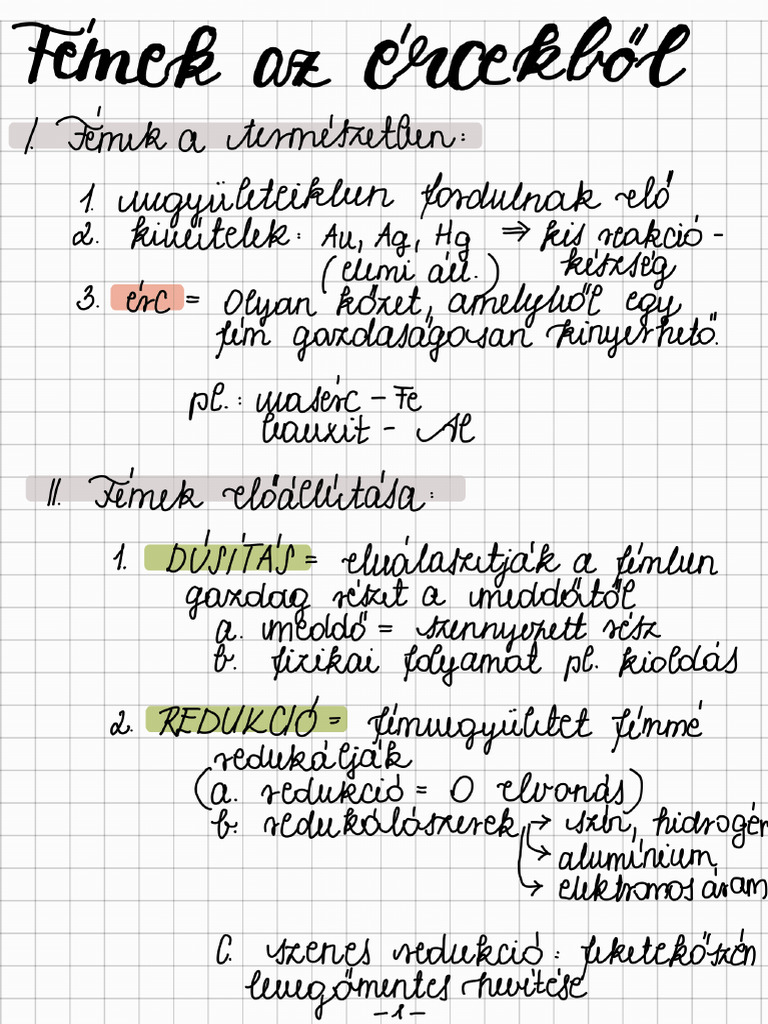 Fémek az ércekből
I. Fémek a természetben:
1. vegyületeikben fordulnak elő
2. kivételek: Au, Ag, Hg ⇒ kis reakció-
(elemi áll.) készség
3. érc = Olyan kőzet, amelyből egy
fém gazdaságosan kinyerhető.
pl.: vasérc - Fe
bauxit - Al
II. Fémek előállítása:
1. DÚSÍTÁS = elválasztják a fémben
gazdag részt a meddőtől
a. meddő = szennyezett rész
b. fizikai folyamat pl. kioldás
2. REDUKCIÓ = fémvegyületet fémmé
redukálják
(a. redukció = O elvonás)
b. redukálószerek → szén, hidrogén
→ alumínium
→ elektromos áram
C. szenes redukció: feketekőszén
levegőmentes hevítése
-1-